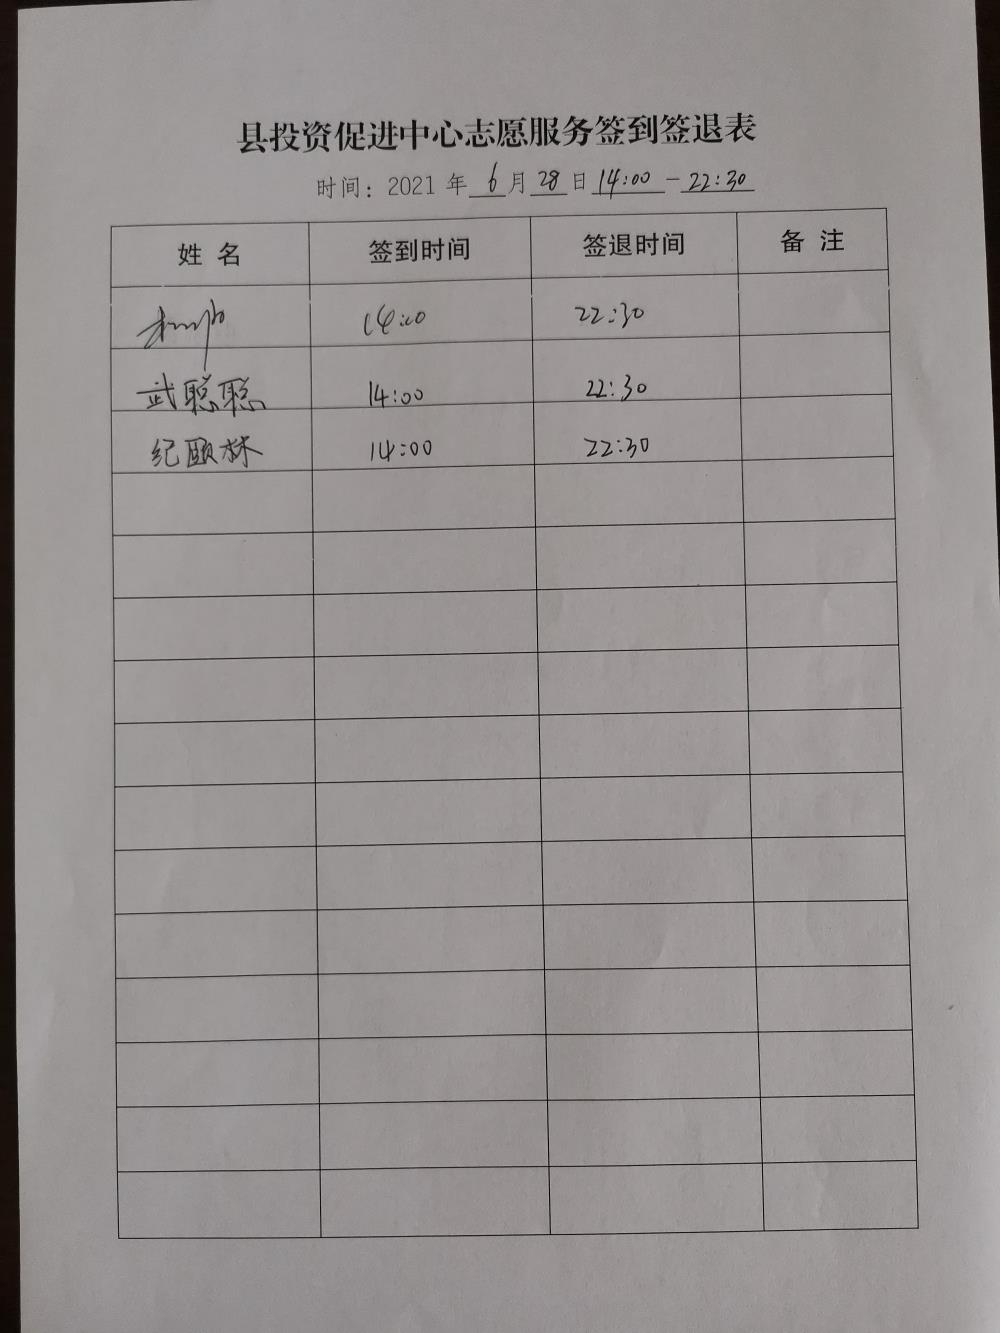 县投资促进中心志愿服务签到签退表
时间：2021 年 6 月 28 日 14:00 — 22:30
姓 名 签到时间 签退时间 备 注
14:00 22:30
武聪聪 14:00 22:30
纪颐林 14:00 22:30